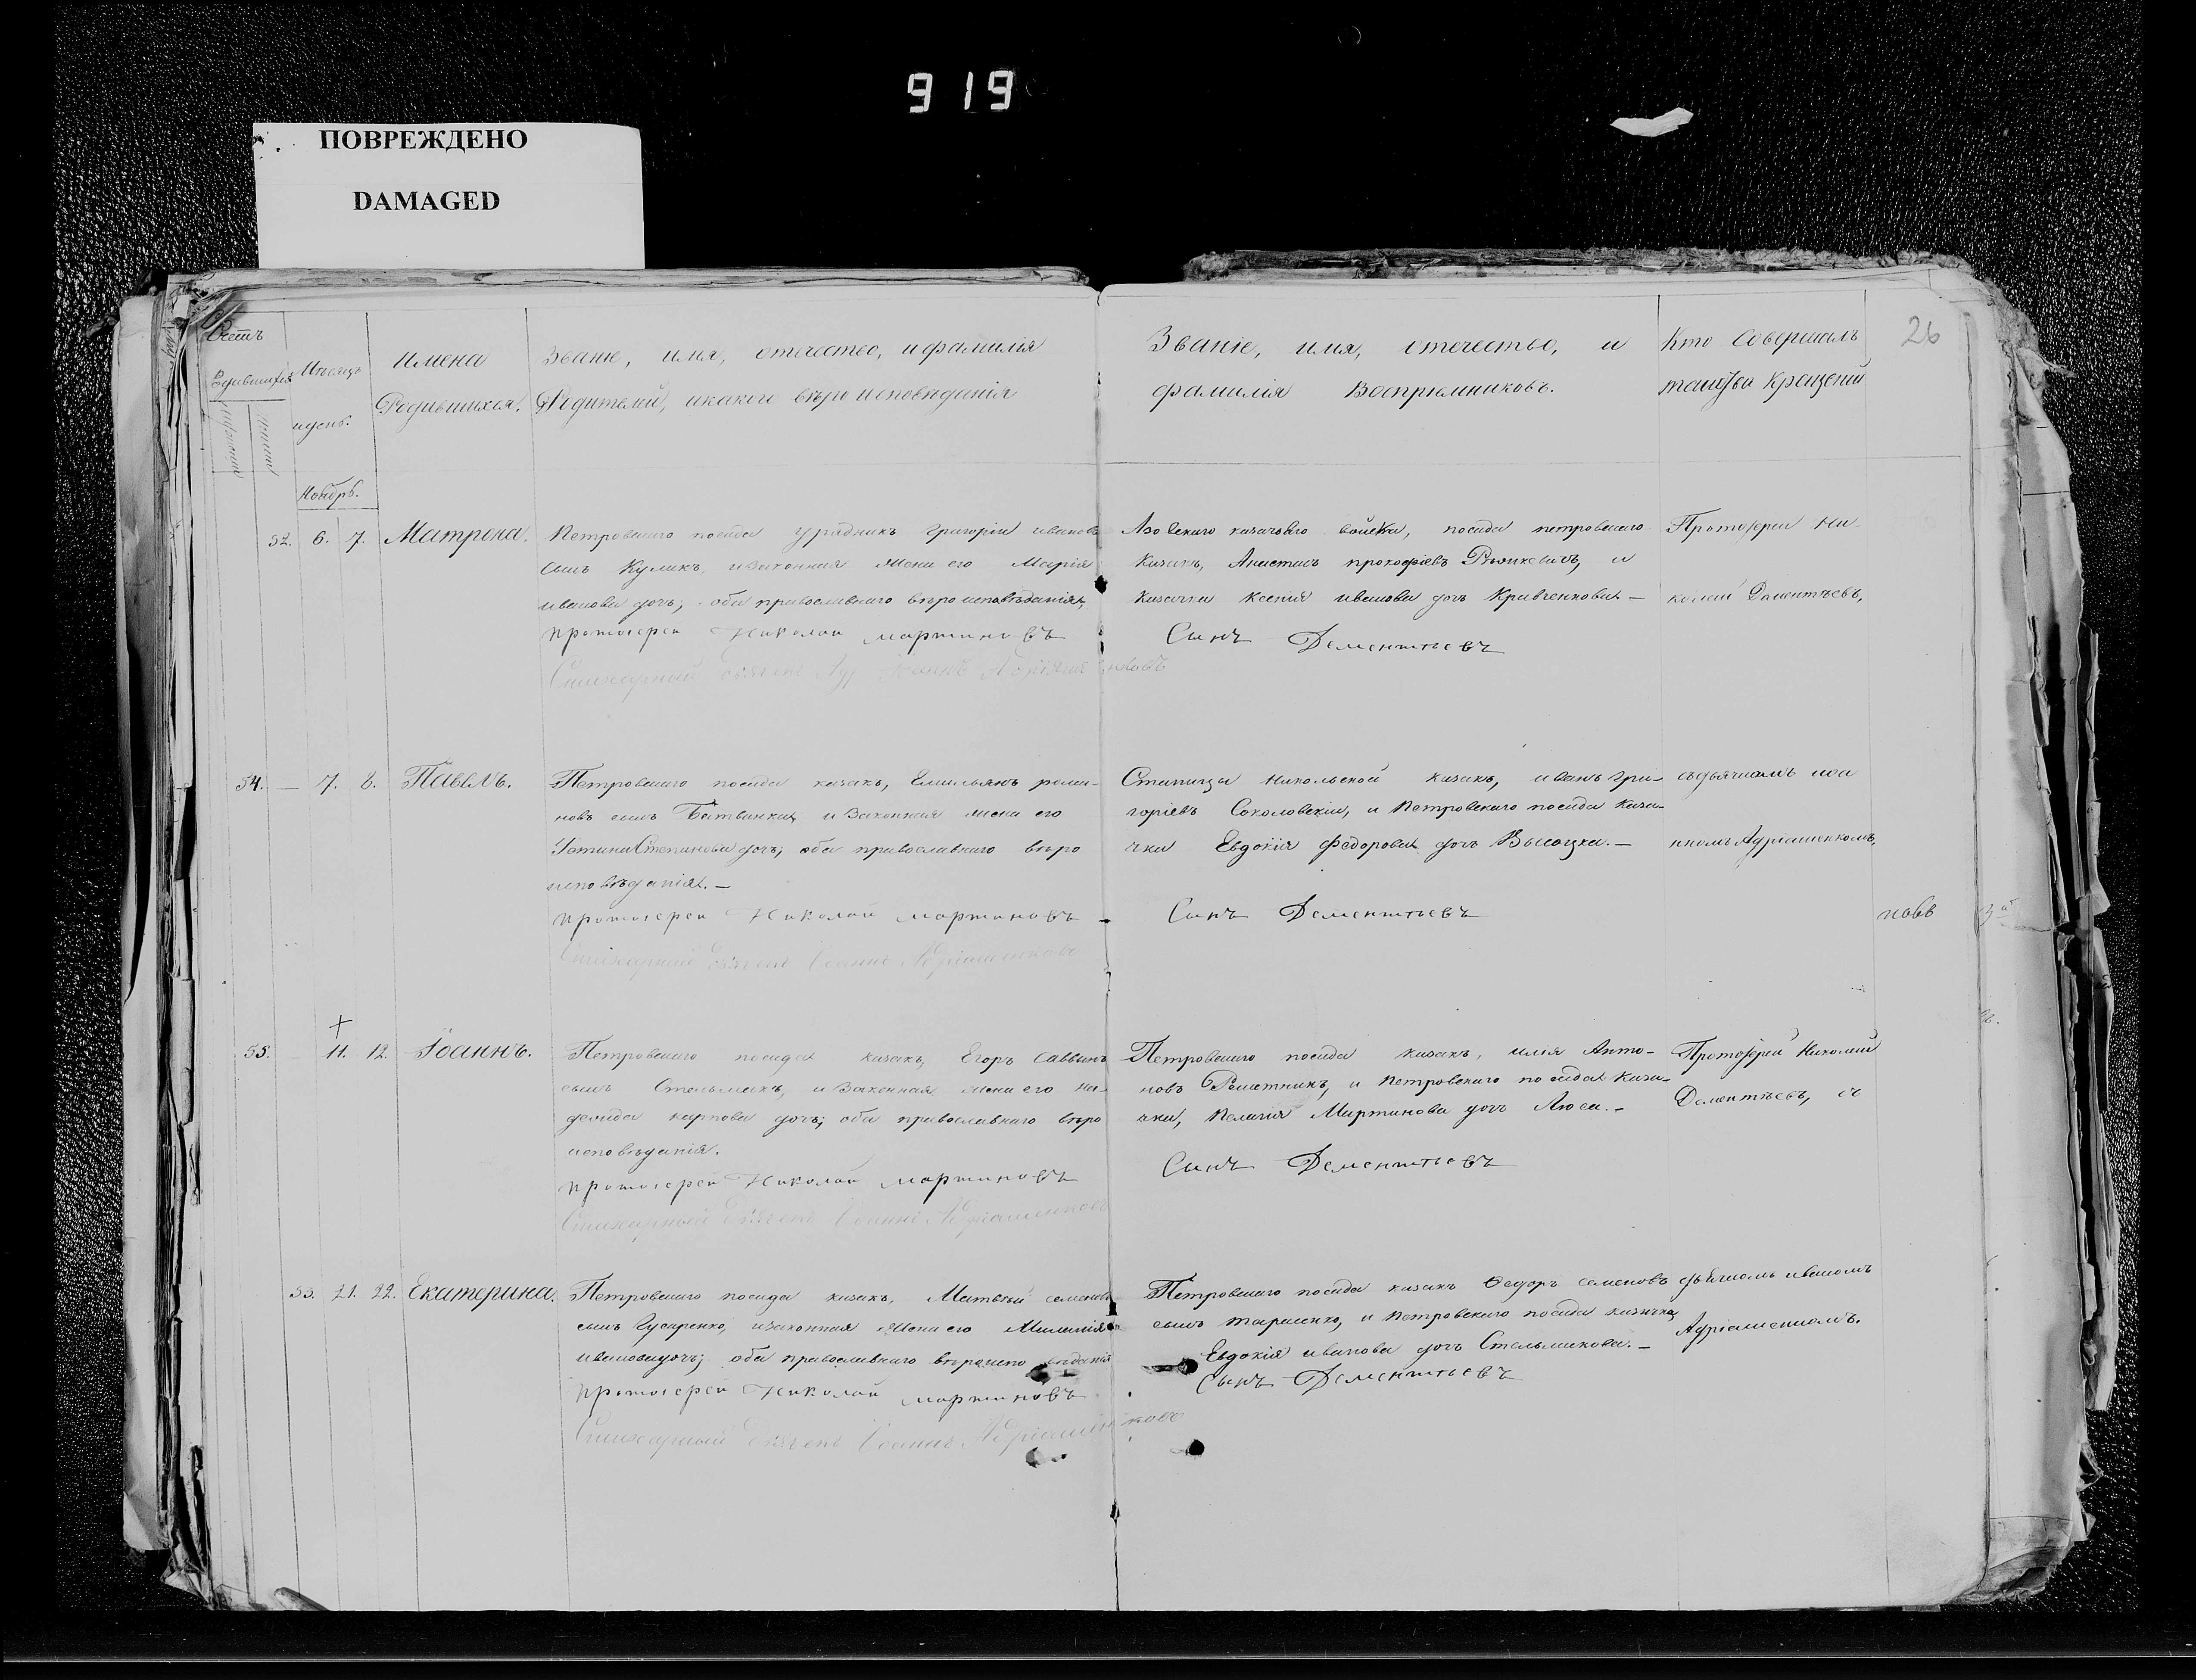 919
ПОВРЕЖДЕНО
DAMAGED
26
Счетъ
Родившихся
Мѣсяцъ
и день.
Имена
Родившихся.
Званіе, имя, отечество, и фамилія
Родителей, и какого вѣроисповѣданія
Званіе, имя, отечество, и
фамилія Воспріемниковъ.
Кто совершалъ
таинство крещенія
Ноябрь.
52. 6. 7. Матрона.
Петровскаго посада урядникъ Григорій Ивановъ
сынъ Куликъ, и законная жена его Марія
Иванова дочь; оба православнаго вѣроисповѣданія,
протоіерей Николай Мартиновъ
Стихарный Іоаннъ Адріашенковъ
Азовскаго казачьяго войска, посада Петровскаго
казакъ, Прокофіевъ и
казачка Ксенія Иванова дочь Кравченкова —
Сынъ Дементьевъ
Протоіерей Ни-
колай Дементьевъ,
54. — 7. 8. Павелъ.
Петровскаго посада казакъ, Емильянъ Рома-
новъ сынъ и законная жена его
Степанова дочь; оба православнаго вѣро
исповѣданія. —
протоіерей Николай Мартиновъ
Стихарный Іоаннъ Адріашенковъ
Станицы Никольской казакъ, Иванъ Гри-
горіевъ Соколовскій, и Петровскаго посада каза-
чка Евдокія Федорова дочь Высоцка. —
Сынъ Дементьевъ
съ дьячкомъ Іоа
нномъ Адріашенкомъ,
новъ
55. 11. 12. Іоаннъ.
Петровскаго посада казакъ, Егоръ Саввинъ
сынъ Стельмахъ, и законная жена его На-
дежда Карпова дочь; оба православнаго вѣро
исповѣданія.
протоіерей Николай Мартиновъ
Стихарный Іоаннъ Адріашенковъ
Петровскаго посада казакъ, Илія Анто-
новъ и Петровскаго посада каза-
чка, Пелагія Мартинова дочь
Сынъ Дементьевъ
Протоіерей Николай
Дементьевъ, съ
53. 21. 22. Екатерина.
Петровскаго посада казакъ, Матвѣй Семеновъ
сынъ Гусаренко, и законная жена его
Иванова дочь; оба православнаго
протоіерей Николай Мартиновъ
Стихарный Іоаннъ Адріашенковъ
Петровскаго посада казакъ Ѳедоръ Семеновъ
сынъ Тарасенко, и Петровскаго посада казачка
Евдокія Иванова дочь Стельмахова. —
Сынъ Дементьевъ
дьячкомъ Иваномъ
Адріашенкомъ.